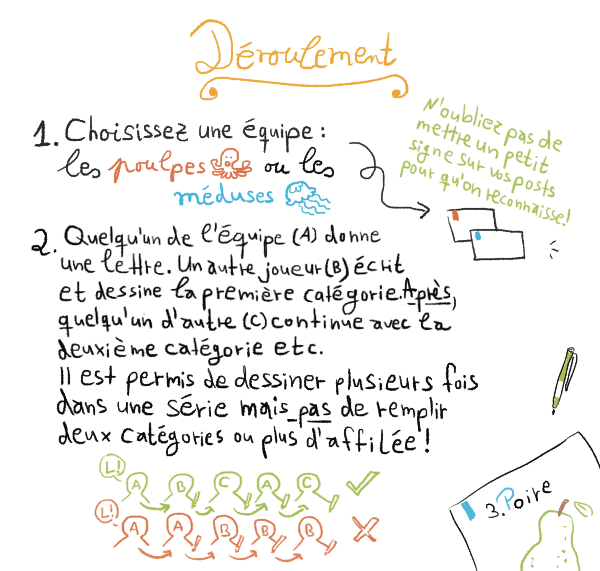 Déroulement
1. Choisissez une équipe :
les poulpes ou les
méduses
N'oubliez pas de
mettre un petit
signe sur vos posts
pour qu'on reconnaisse!
2. Quelqu'un de l'équipe (A) donne
une lettre. Un autre joueur (B) écrit
et dessine la première catégorie. Après,
quelqu'un d'autre (C) continue avec la
deuxième catégorie etc.
Il est permis de dessiner plusieurs fois
dans une série mais pas de remplir
deux catégories ou plus d'affilée !
L! A B C A C
L! A A B B B
3. Poire